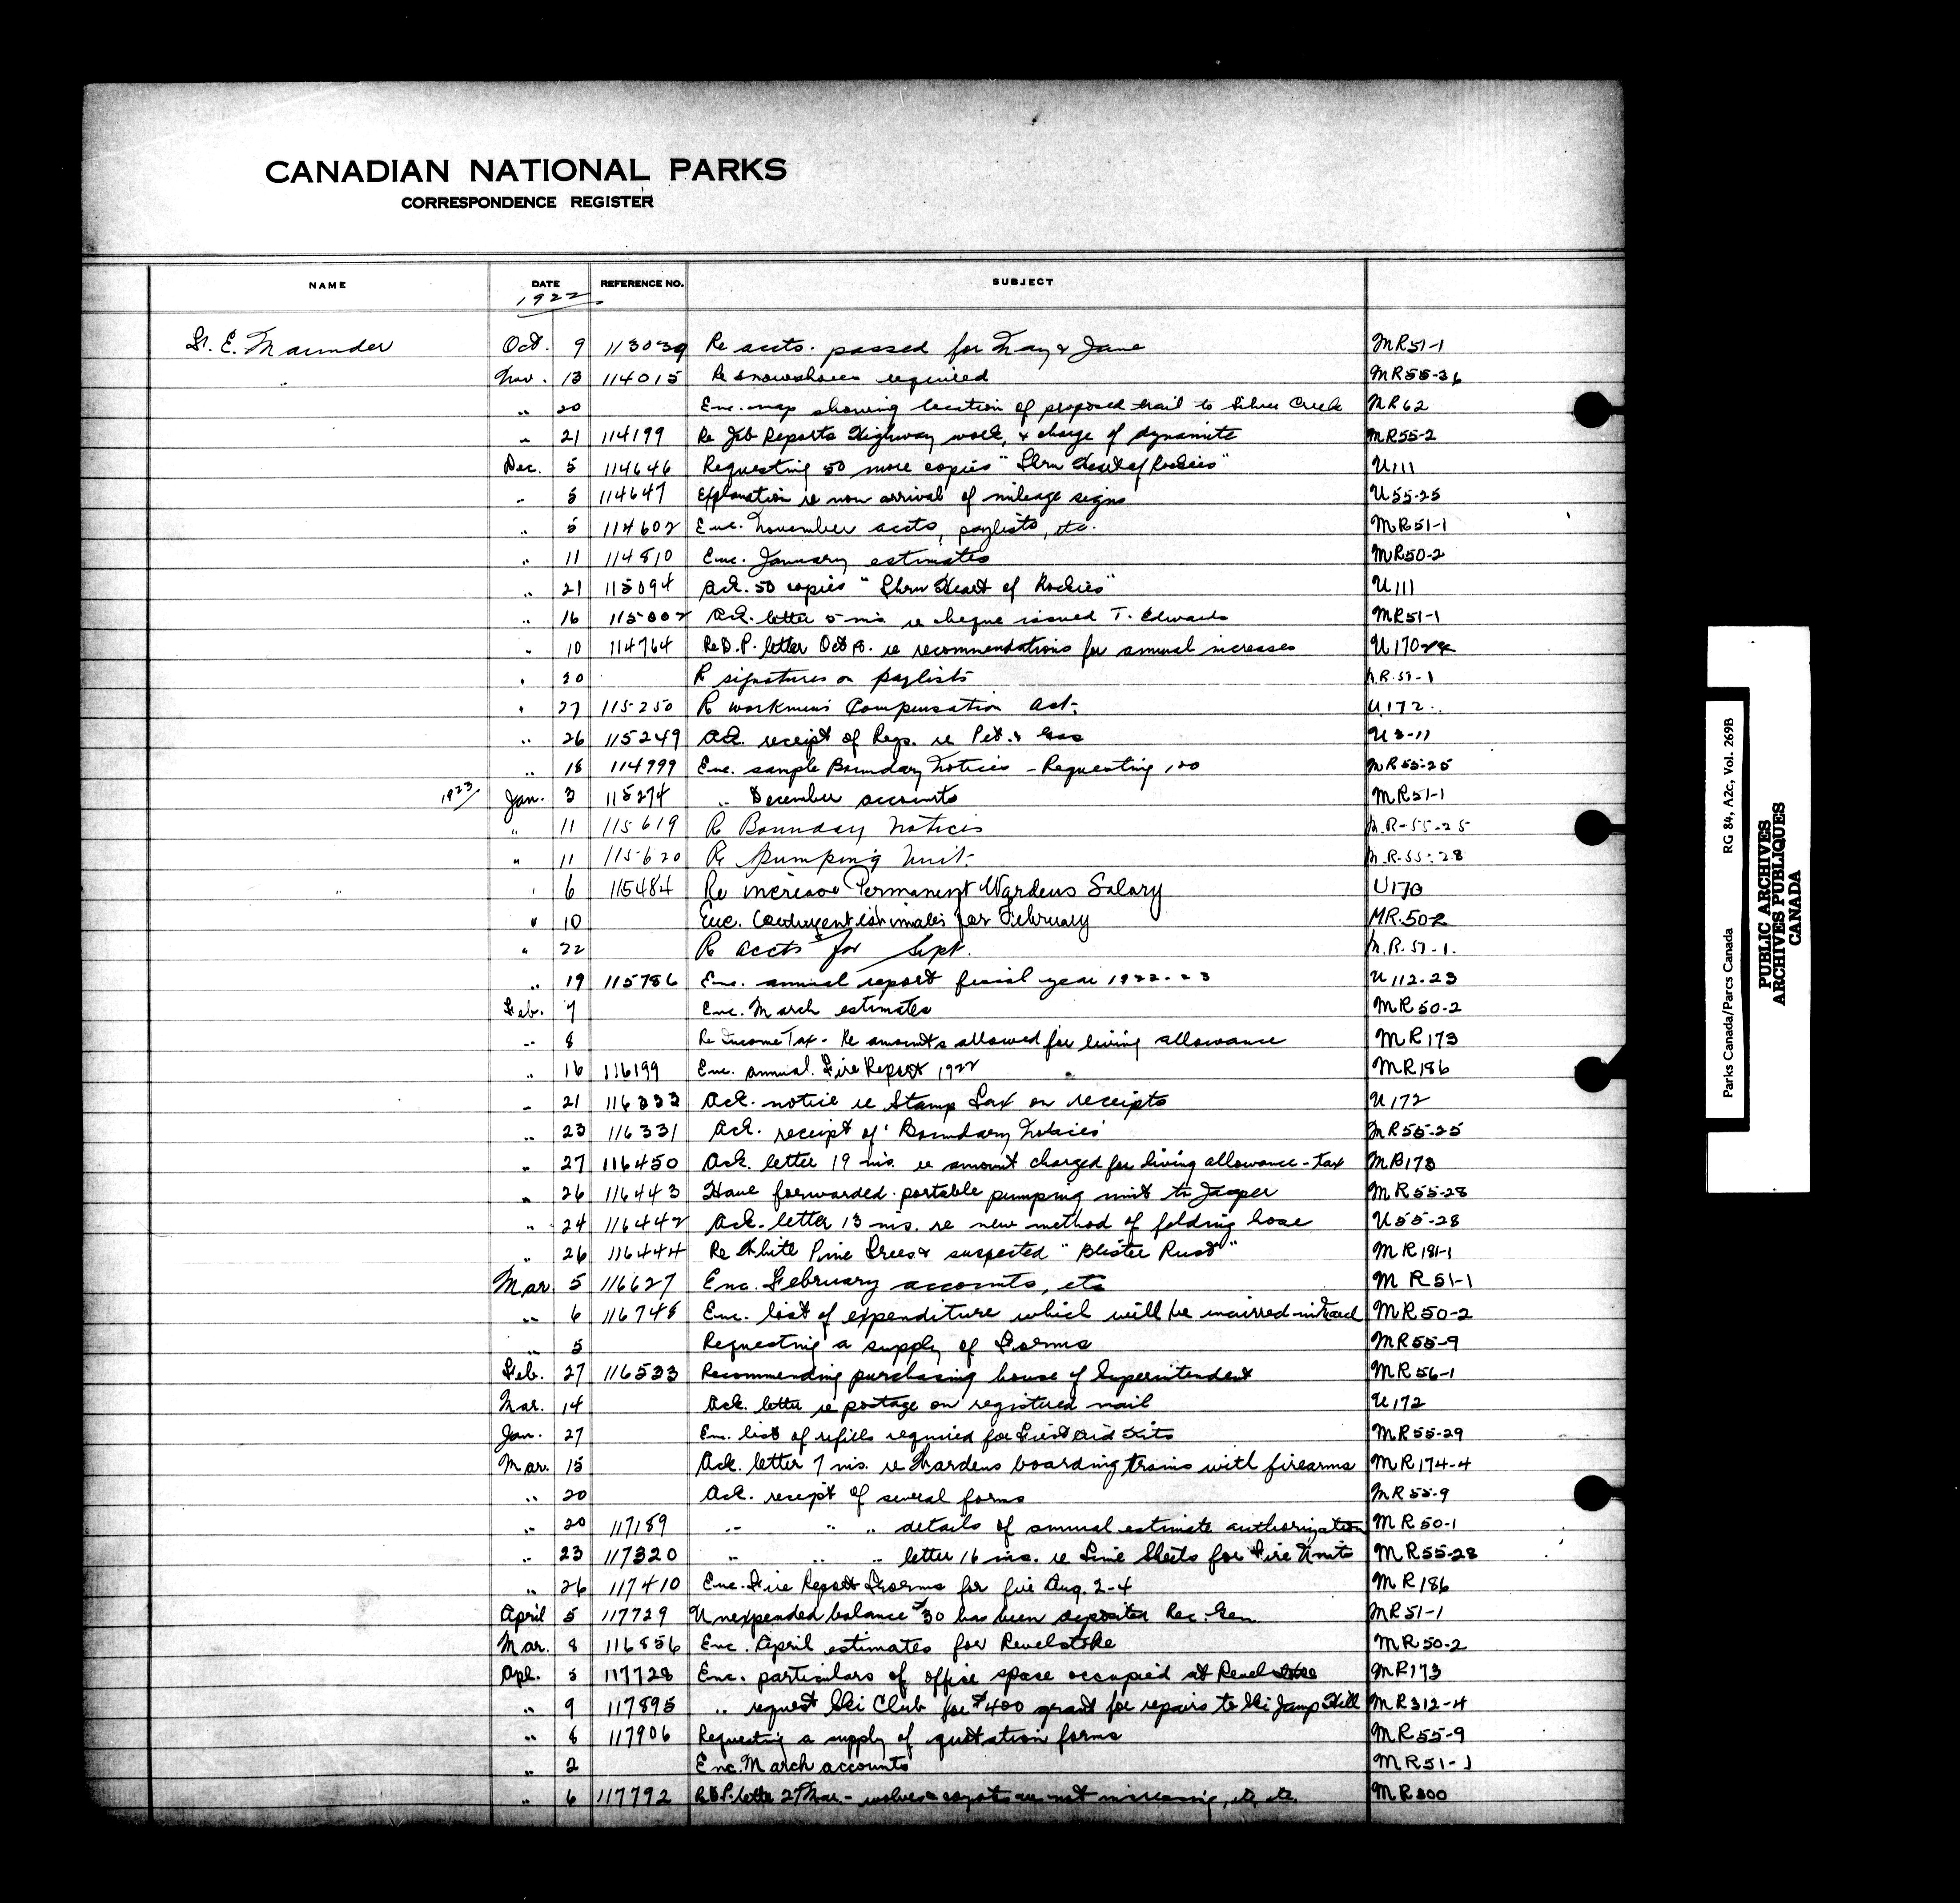 CANADIAN NATIONAL PARKS
CORRESPONDENCE REGISTER
NAME DATE REFERENCE NO. SUBJECT
1922
E. Maunder Oct. 9 113039 Re accts. passed for May & June MR51-1
" Nov. 13 114015 Re snowshoes required MR55-36
" 20 Enc. map showing location of proposed trail to Silver Creek MR62
" 21 114199 Re Job Reports Highway work, & charge of dynamite MR55-2
Dec. 5 114646 Requesting 50 more copies "Thru Heart of Rockies" U111
" 5 114647 Explanation re non arrival of mileage signs U55-25
" 5 114602 Enc. November accts, paylists, etc. MR51-1
" 11 114810 Enc. January estimates MR50-2
" 21 115094 Ack. 50 copies "Thru Heart of Rockies" U111
" 16 115002 Ack. letter 5 ins. re cheque issued T. Edwards MR51-1
" 10 114764 Re D.P. letter Oct re recommendations for annual increases U170
" 20 Re signatures on paylists M.R.51-1
" 27 115250 Re Workmen's Compensation Act. U172
" 26 115249 Ack. receipt of Regs. re Pet. & Gas U3-11
" 18 114999 Enc. sample Boundary Notices - Requesting 100 MR55-25
1923 Jan. 3 115274 " December accounts MR51-1
" 11 115619 Re Boundary Notices M.R-55-25
" 11 115620 Re Pumping Unit. M.R-55-28
" " 6 115484 Re increase Permanent Wardens Salary U170
" 10 Enc. Contingent estimates for February MR.50-2
" 22 Re accts for Sept. M.R.51-1.
" 19 115786 Enc. annual report fiscal year 1922-23 U112-23
Feb. 7 Enc. March estimates MR50-2
" 8 Re Income Tax - Re amounts allowed for living allowance MR173
" 16 116199 Enc. annual Fire Report 1922 MR186
" 21 116333 Ack. notice re Stamp Tax on receipts U172
" 23 116331 Ack. receipt of 'Boundary Notices' MR55-25
" 27 116450 Ack. letter 19 ins. re amount charged for living allowance - tax MR173
" 26 116443 Have forwarded portable pumping unit to Jasper MR55-28
" 24 116442 Ack. letter 13 ins. re new method of folding hose U55-28
" 26 116444 Re White Pine Trees & suspected "Blister Rust" MR181-1
Mar. 5 116627 Enc. February accounts, etc MR51-1
" 6 116748 Enc. list of expenditure which will be incurred MR50-2
" 5 Requesting a supply of Forms MR55-9
Feb. 27 116533 Recommending purchasing house of Superintendent MR56-1
Mar. 14 Ack. letter re postage on registered mail U172
Jan. 27 Enc. list of refills required for First Aid Kits MR55-29
Mar. 15 Ack. letter 7 ins. re Wardens boarding trains with firearms MR174-4
" 20 Ack. receipt of several forms MR55-9
" 20 117189 " " " details of annual estimate authorization MR50-1
" 23 117320 " " " letter 16 ins. re Time Sheets for Fire Units MR55-28
" 26 117410 Enc. Fire Report Forms for fire Aug. 2-4 MR186
April 5 117729 Unexpended balance $30 has been deposited Rec. Gen. MR51-1
Mar. 8 116856 Enc. April estimates for Revelstoke MR50-2
Apl. 5 117728 Enc. particulars of office space occupied at Revelstoke MR173
" 9 117895 " request Ski Club for $400 grant for repairs to Ski Jump Hill MR312-4
" 8 117906 Requesting a supply of quotation forms MR55-9
" 2 Enc. March accounts MR51-1
" 6 117792 Re D.P. letter 27 Mar. - wolves & coyotes are not increasing, etc. etc. MR300
Parks Canada/Parcs Canada RG 84, A2c, Vol. 269B
PUBLIC ARCHIVES
ARCHIVES PUBLIQUES
CANADA